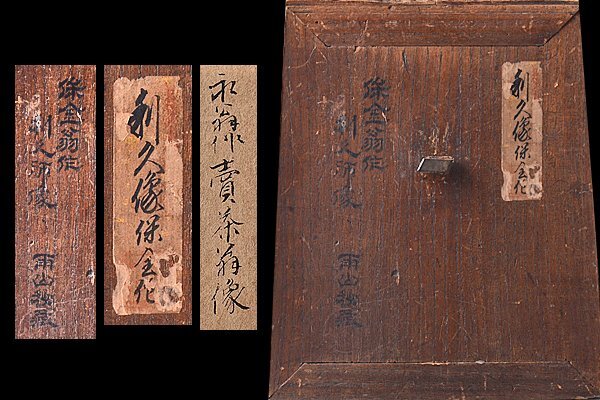 保全翁作
利久師像
山秘藏
利久像保全作
永翁作賣茶翁像
利久像保全作
保全翁作
利久師像
山秘藏